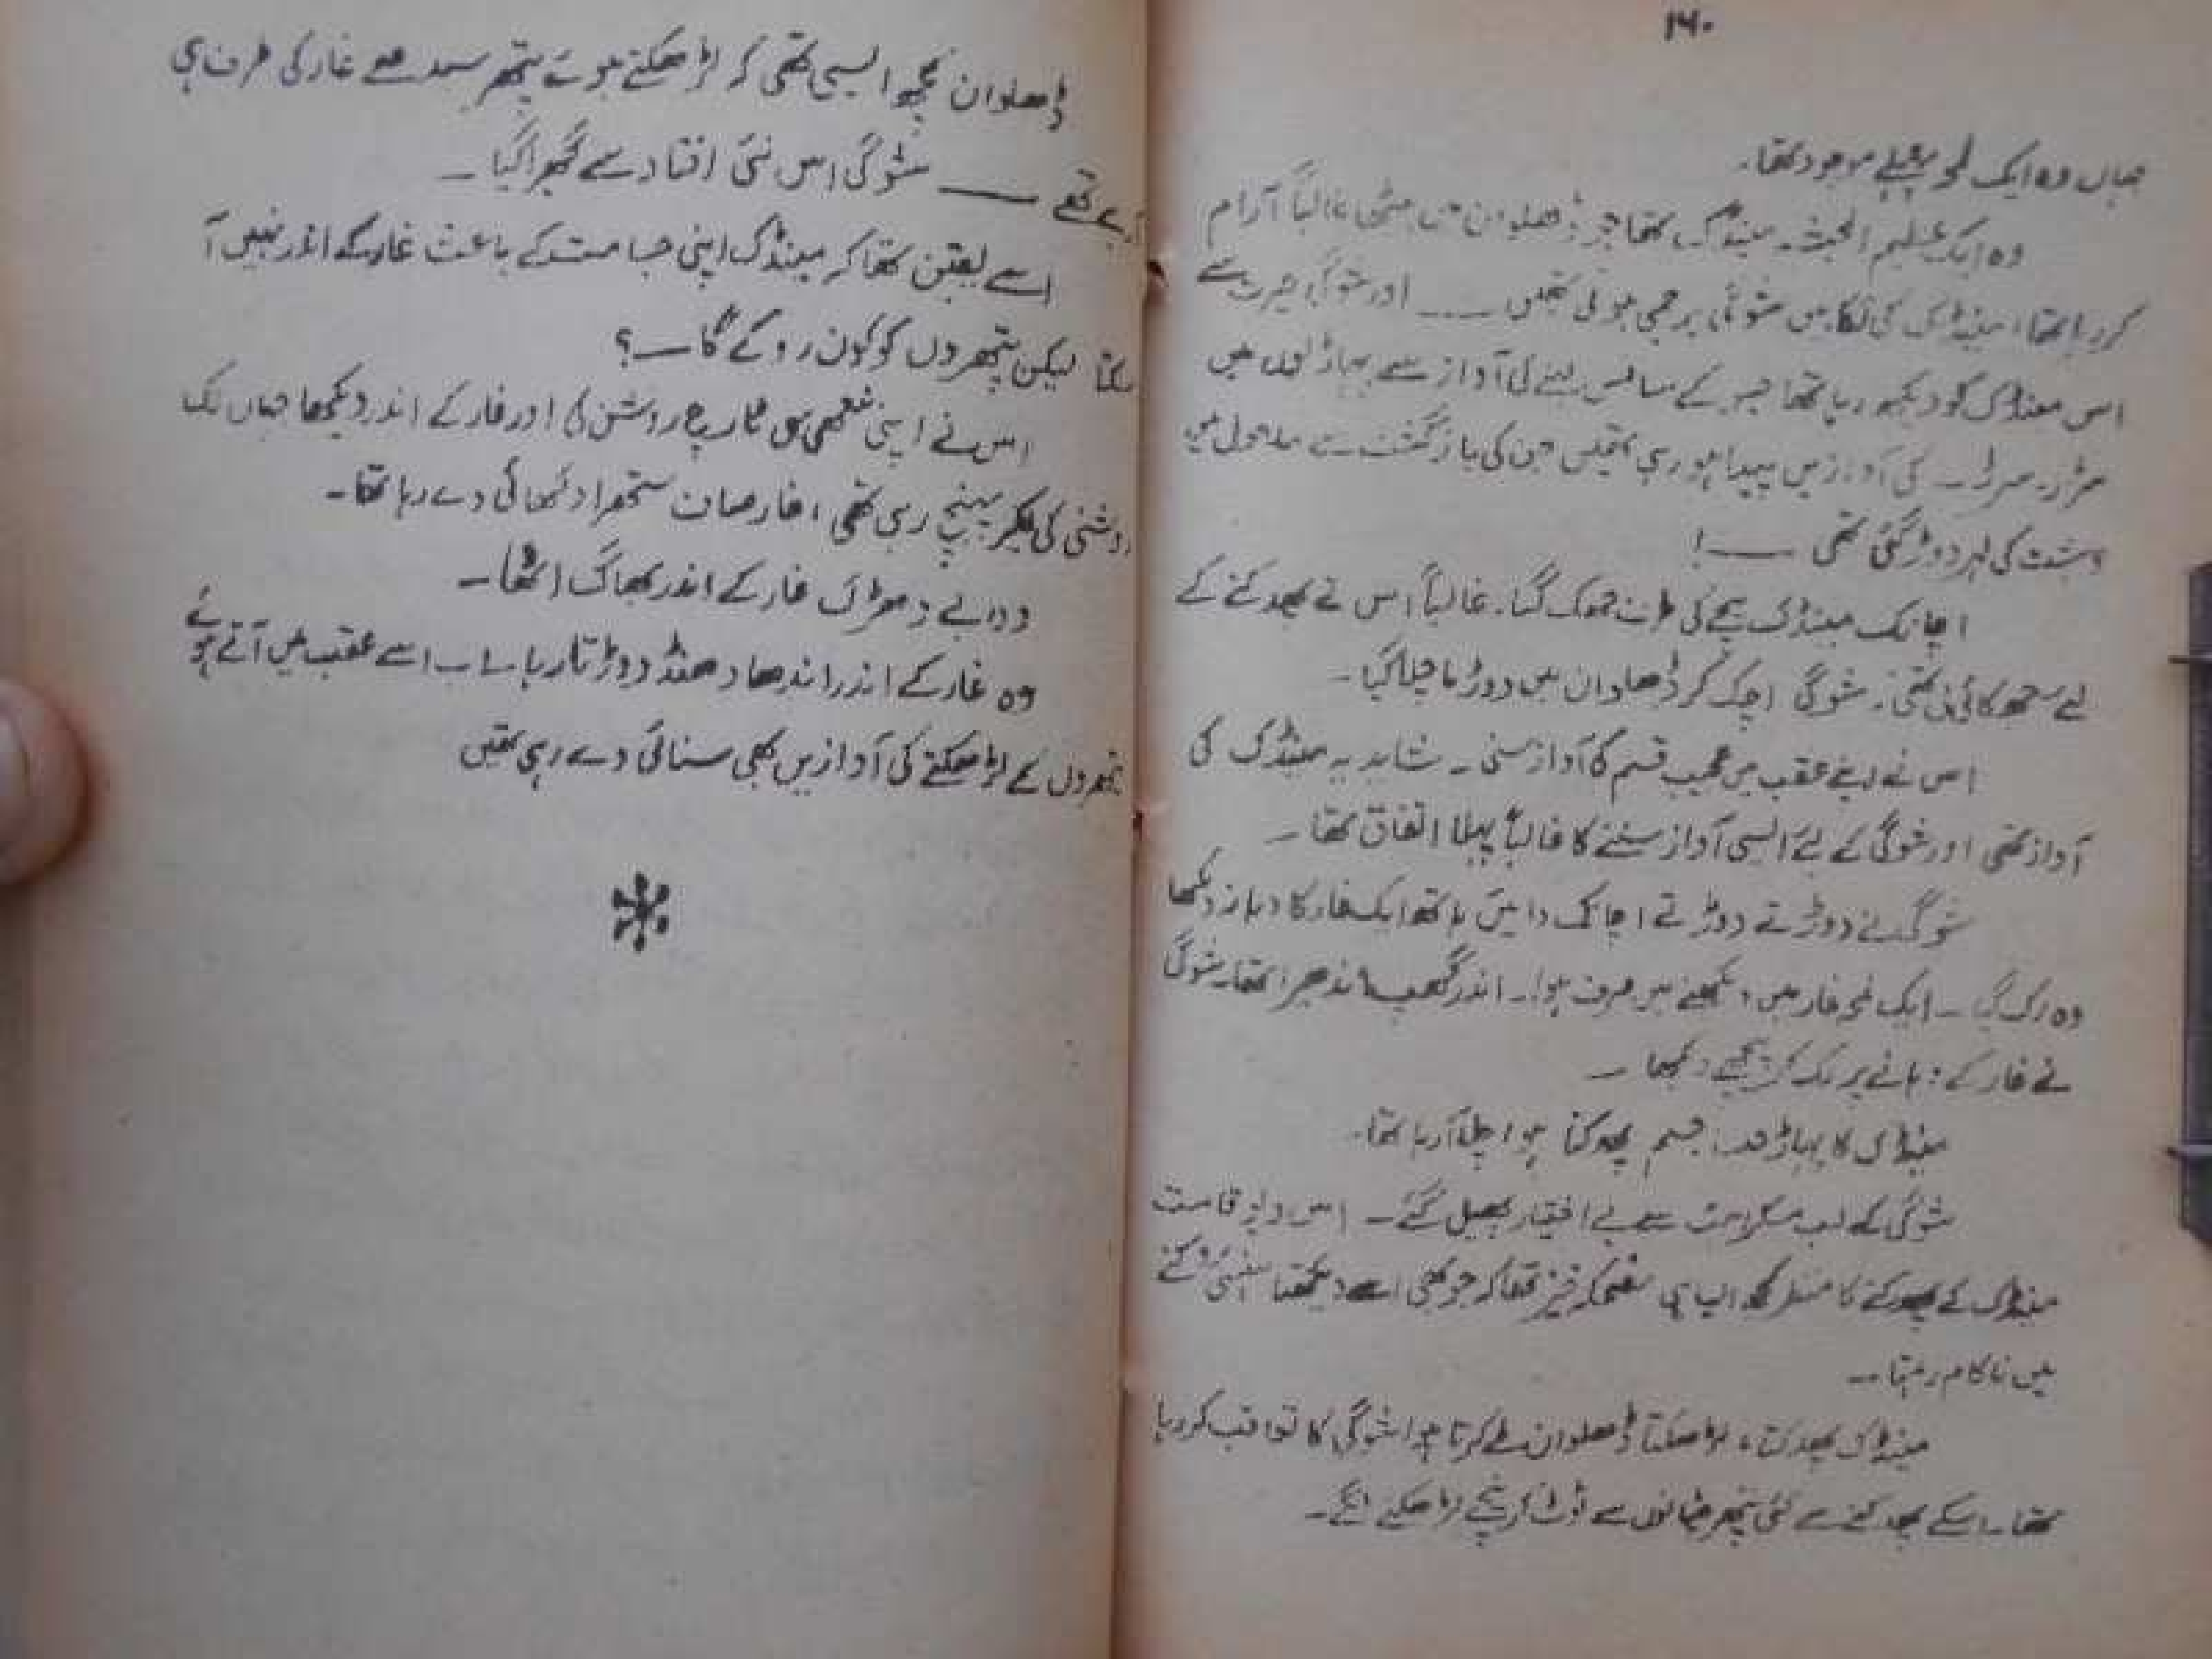 ۱۴۰
جہاں وہ ایک لمحہ پہلے موجود تھا۔
وہ ایک عظیم الجثہ مینڈک تھا جو ڈھلوان میں بیٹھا غالباً آرام
کر رہا تھا، مینڈک کی نگاہیں شوگی پر جمی ہوئی تھیں ۔۔۔ اور شوگی حیرت سے
اس مینڈک کو دیکھ رہا تھا جس کے سانس لینے کی آواز سے پہاڑیوں میں
سرڑ۔ سرڑ۔ کی آوازیں پیدا ہو رہی تھیں جن کی بازگشت سے ماحول میں
دہشت کی لہر دوڑ گئی تھی ——!
اچانک مینڈک نیچے کی طرف جھک گیا۔ غالباً اس نے پھدکنے کے
لئے سمجھ کائی لی تھی۔ شوگی اچک کر ڈھلوان میں دوڑتا چلا گیا۔
اس نے اپنے عقب میں عجیب قسم کی آواز سنی۔ شاید یہ مینڈک کی
آواز تھی اور شوگی کے لئے ایسی آواز سننے کا غالباً پہلا اتفاق تھا۔
شوگی نے دوڑتے دوڑتے اچانک دائیں ہاتھ ایک غار کا دہانہ دیکھا
وہ رک گیا۔ ایک لمحہ غار میں دیکھنے میں صرف ہوا۔ اندر گھپ اندھیرا تھا۔ شوگی
نے غار کے دہانے پر رک کر پیچھے دیکھا —
مینڈک کا پہاڑ جیسا جسم پھدکتا ہوا چلا آ رہا تھا۔
شوگی کے لب مسکراہٹ سے بے اختیار پھیل گئے۔ اس دراز قامت
مینڈک کے پھدکنے کا منظر کچھ ایسا ہی مضحکہ خیز تھا کہ جو بھی اسے دیکھتا ہنسی روکنے
میں ناکام رہتا —
مینڈک پھدکتا، لڑھکتا ڈھلوان طے کرتا ہوا شوگی کا تواقب کر رہا
تھا۔ اسکے پھدکنے سے کئی پتھر چٹانوں سے ٹوٹ کر نیچے لڑھکنے لگے۔
ڈھلوان کچھ ایسی تھی کہ لڑھکتے ہوئے پتھر سیدھے غار کی طرف ہی
آ رہے تھے —— شوگی اس نئی افتاد سے گھبرا گیا۔
اسے یقین تھا کہ مینڈک اپنی جسامت کے باعث غار کے اندر نہیں آ
سکتا لیکن پتھروں کو کون روکے گا —؟
اس نے اپنی ننھی سی ٹارچ روشن کی اور غار کے اندر دیکھا جہاں تک
روشنی کی لکیر پہنچ رہی تھی، غار صاف ستھرا دکھائی دے رہا تھا۔
وہ بے دھڑک غار کے اندر بھاگ اٹھا۔
وہ غار کے اندر اندھا دھند دوڑتا رہا۔ اب اسے عقب میں آتے ہوئے
پتھروں کے لڑھکنے کی آوازیں بھی سنائی دے رہی تھیں